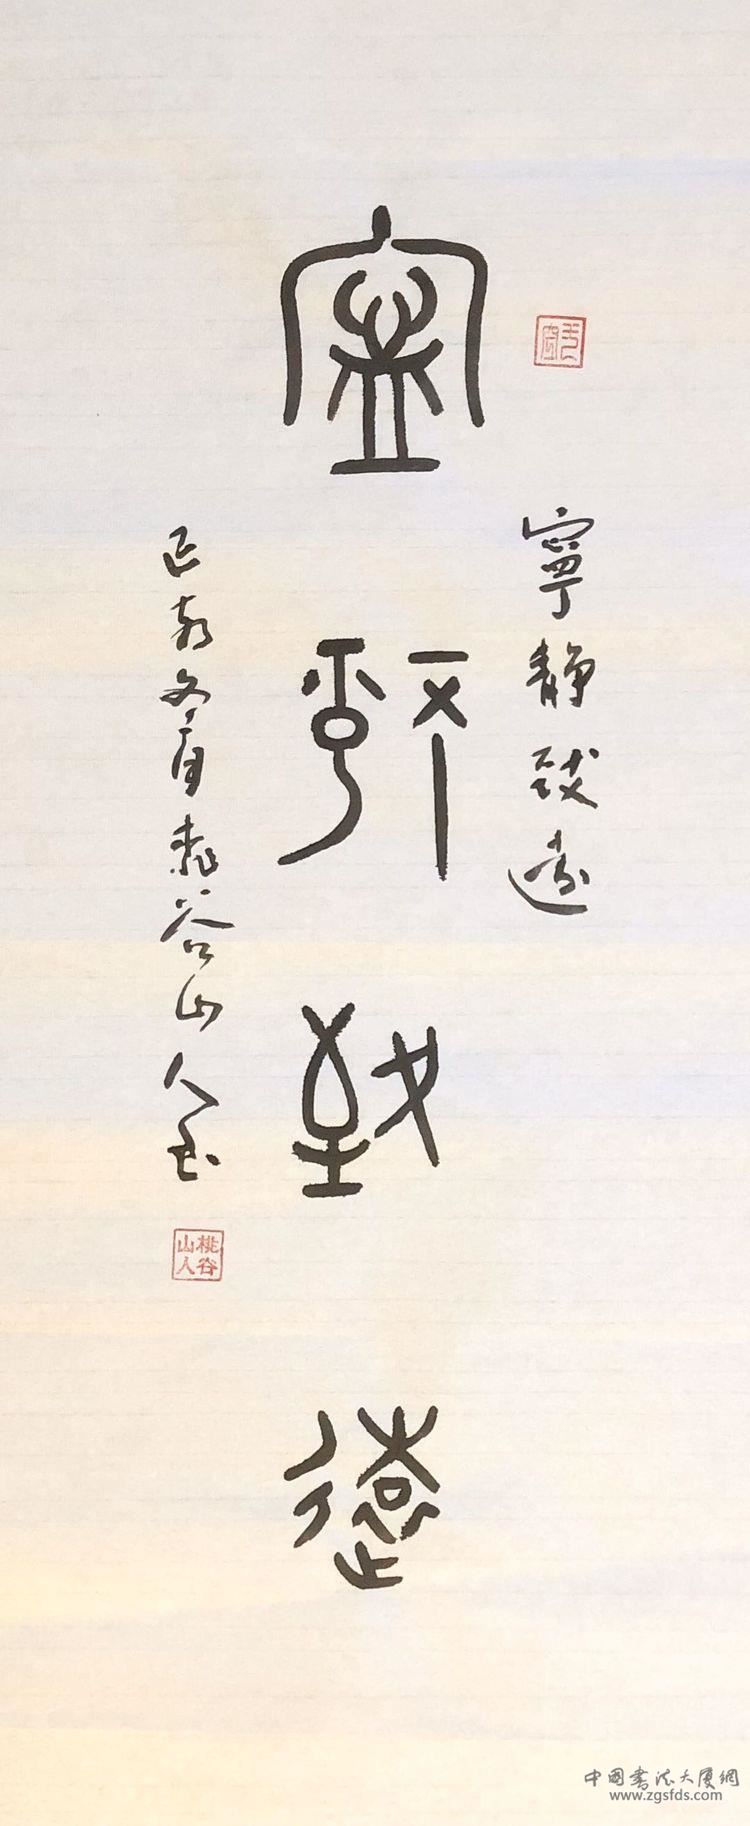 寧靜致遠
寧靜致遠
己亥冬桃谷山人書
桃谷山人
中國書法大廈網
www.zgsfds.com